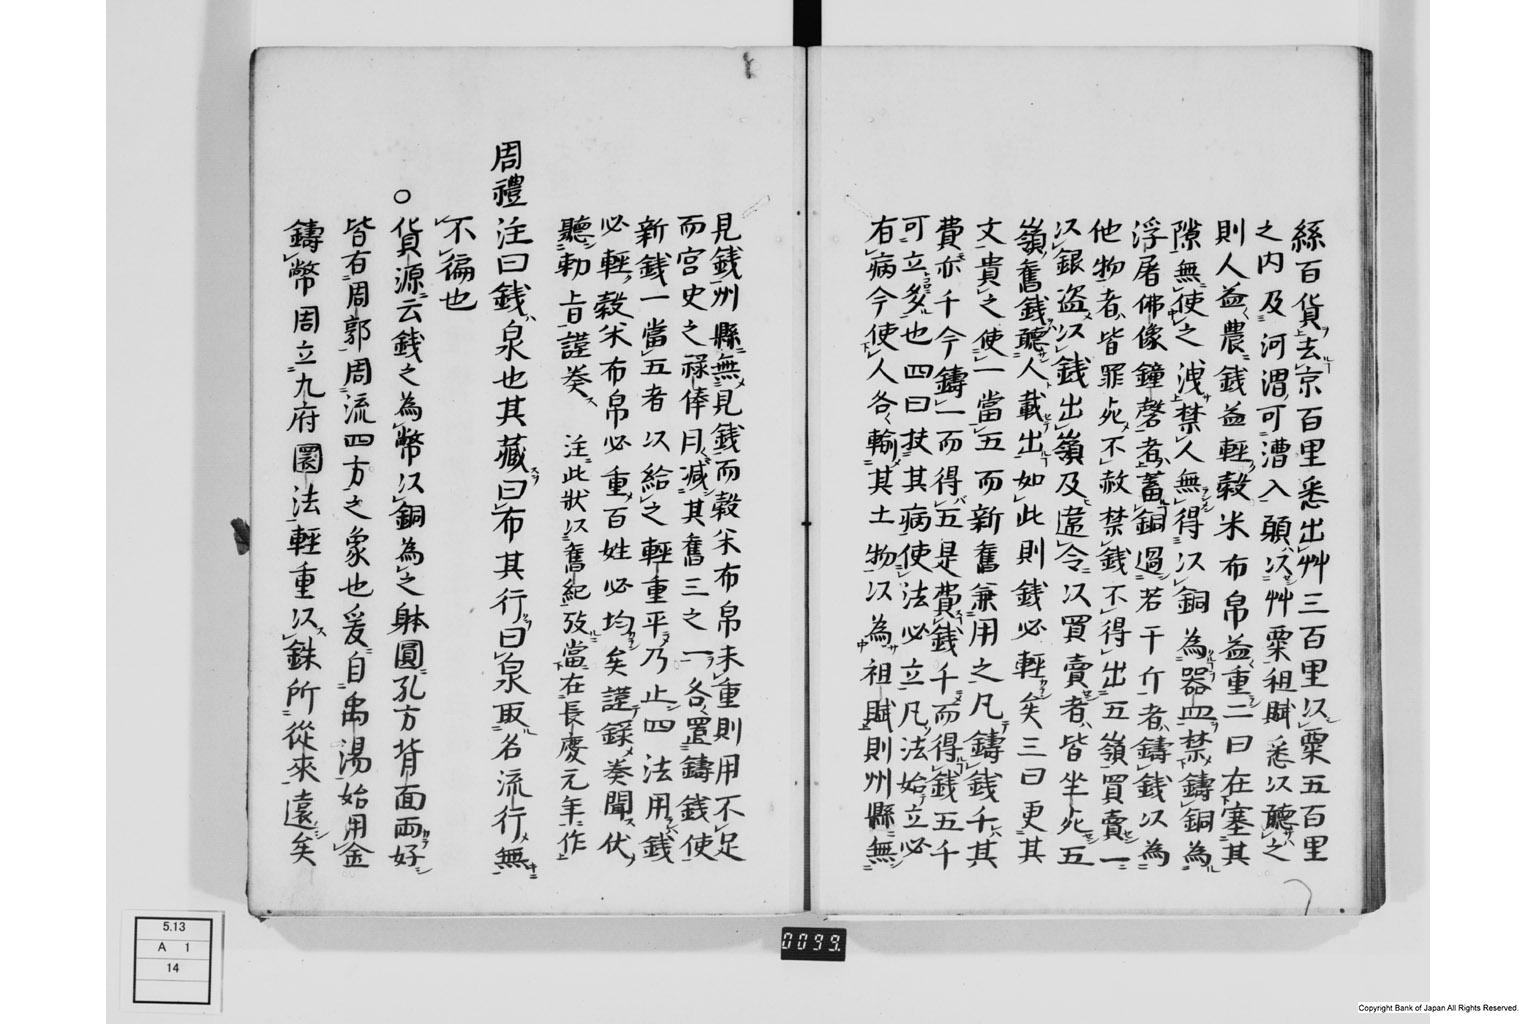 絲百貨去京百里悉出艸三百里以粟五百里
之內及河渭可漕入願以艸粟租賦悉以聽之
則人益農錢益輕穀米布帛益重二曰在塞其
隙無使之洩禁人無得以銅為器皿禁鑄銅為
浮屠佛像鐘磬者蓄銅過若干斤者鑄錢以為
他物者皆罪死不赦禁錢不得出五嶺買賣一
以銀盜以錢出嶺及違令以買賣者皆坐死五
嶺舊錢聽人載出如此則錢必輕矣三曰更其
文貴之使一當五而新舊兼用之凡鑄錢千其
費亦千今鑄一而得五是費錢千而得錢五千
可立多也四曰扶其病使法必立凡法始立必
有病今使人各輸其土物以為租賦則州縣無
見錢州縣無見錢而穀米布帛未重則用不足
而官吏之祿俸月減其舊三之一各置鑄錢使
新錢一當五者以給之輕重平乃止四法用錢
必輕穀米布帛必重百姓必均矣謹錄奏聞伏
聽勅旨謹奏 注此狀以舊紀攷當在長慶元年作
周禮注曰錢泉也其藏曰布其行曰泉取名流行無
不徧也
○貨源云錢之為幣以銅為之躰圓孔方背面兩好
皆有周郭周流四方之象也爰自禹湯始用金
鑄幣周立九府圜法輕重以銖所從來遠矣
5.13
A 1
14
0099.
Copyright Bank of Japan All Rights Reserved.